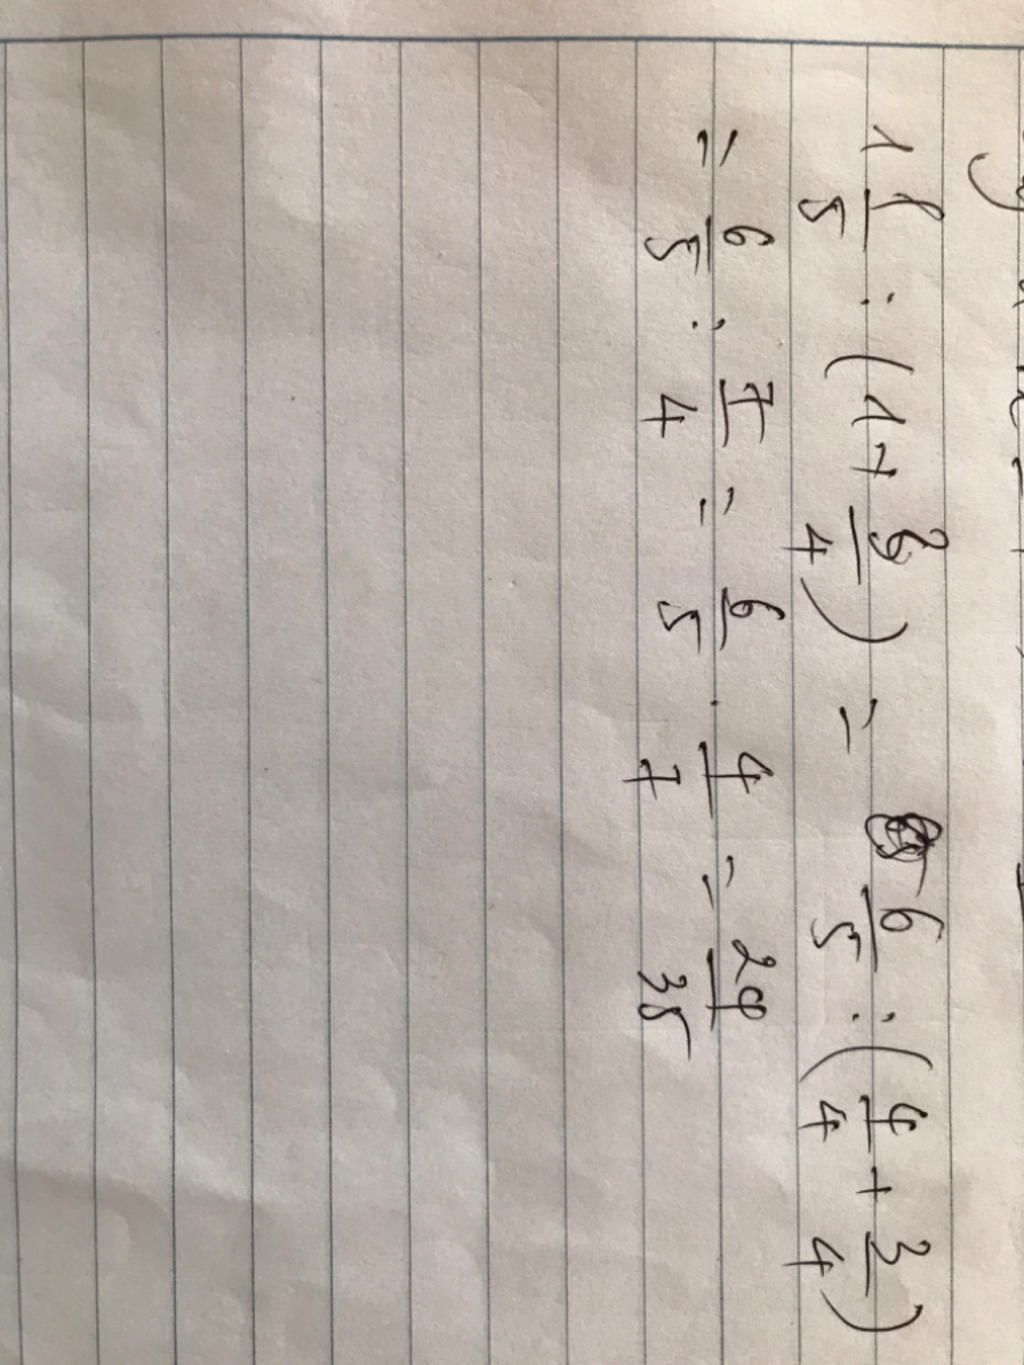 1 1/5 : (1 + 3/4) = 6/5 : (4/4 + 3/4)
= 6/5 : 7/4 = 6/5 . 4/7 = 24/35